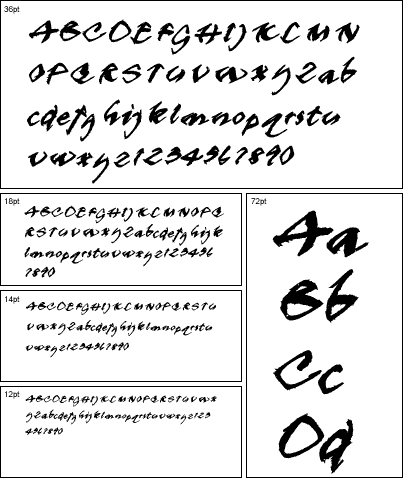 36pt
ABCDEFGHIJKLMN
OPQRSTUVWXYZab
cdefghijklmnopqrstu
vwxyz1234567890
18pt
ABCDEFGHIJKLMNOPQ
RSTUVWXYZabcdefghijk
lmnopqrstuvwxyz123456
7890
14pt
ABCDEFGHIJKLMNOPQRSTU
VWXYZabcdefghijklmnopqrstu
vwxyz1234567890
12pt
ABCDEFGHIJKLMNOPQRSTUVWX
YZabcdefghijklmnopqrstuvwxyz123
4567890
72pt
Aa
Bb
Cc
Dd